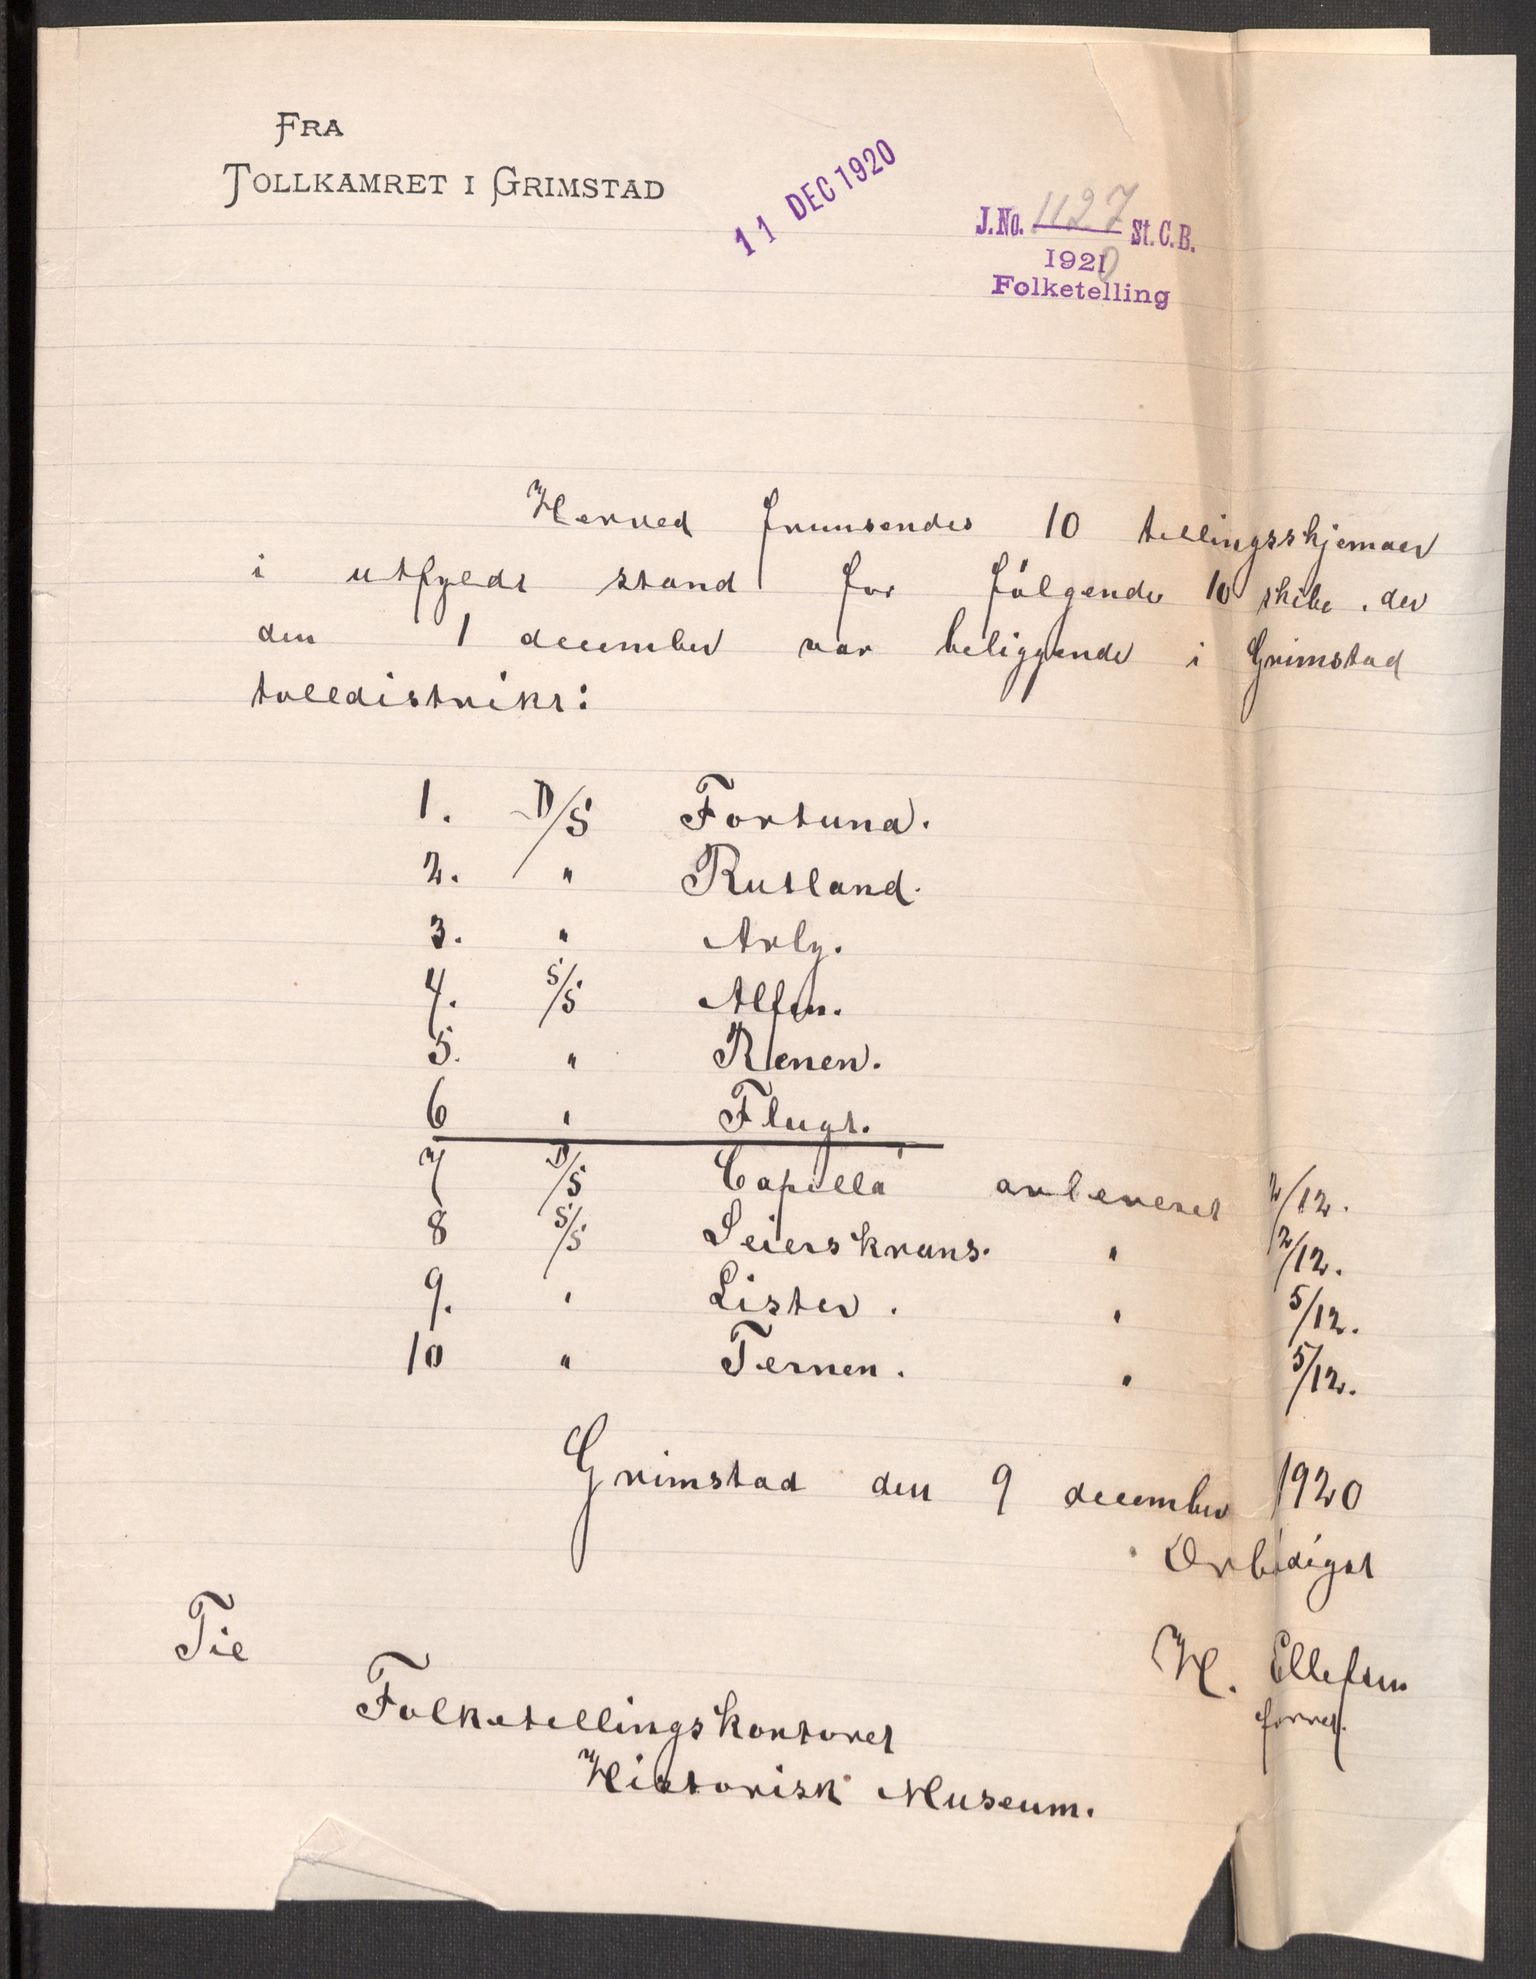 FRA
TOLLKAMRET I GRIMSTAD
11 DEC 1920
J.No. 1127 St.C.B.
1920
Folketelling
Herved fremsendes 10 tellingsskjemaer
i utfyldt stand for følgende 10 skibe, der
den 1 december var beliggende i Grimstad
tolldistrikt:
1. D/S Fortuna.
2. " Rutland.
3. " Arly.
4. S/S Alfen.
5. " Renen.
6 " Flugt.
7 D/S Capella avleveret 2/12.
8 S/S Seierskrans. " 2/12.
9. " Lister. " 5/12.
10 " Ternen. " 5/12.
Grimstad den 9 december 1920
Ærbødigst
H. Ellefsen
Til
Folketellingskontoret
Historisk Museum.